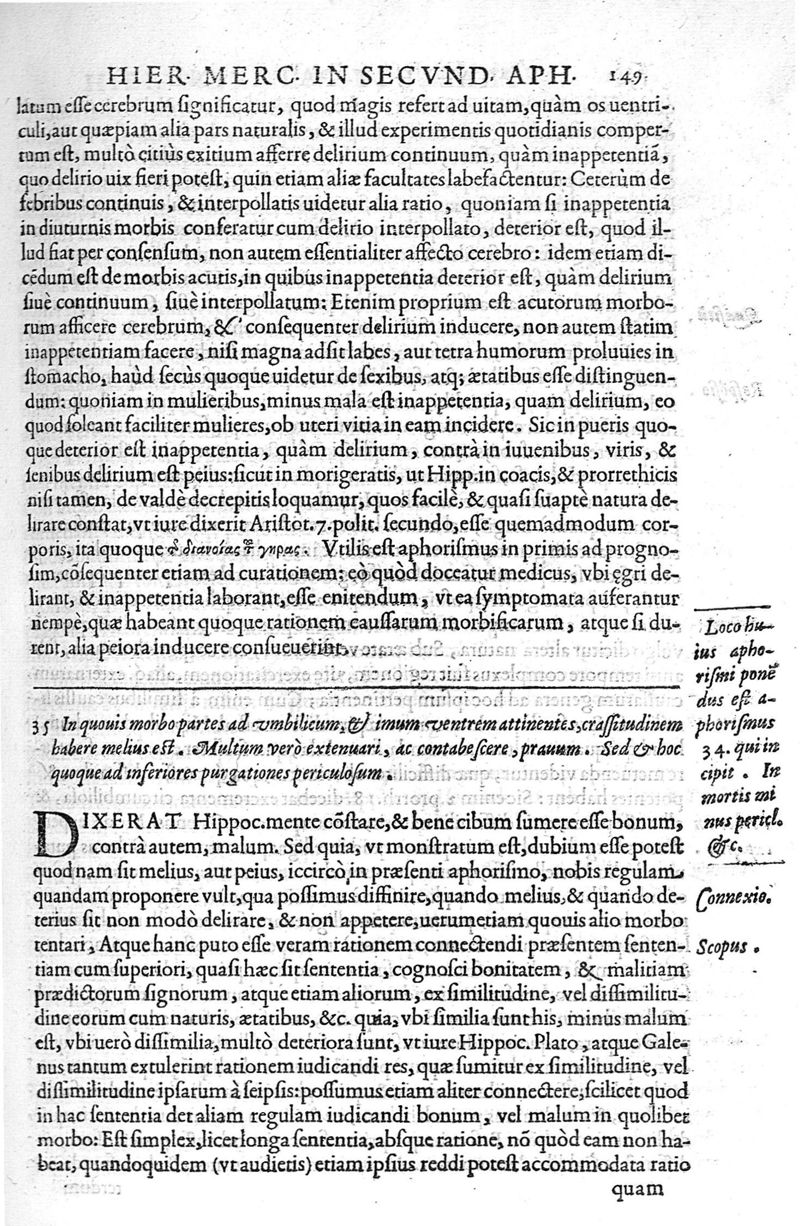 HIER. MERC. IN SECVND. APH. 149.
latum esse cerebrum significatur, quod magis refert ad uitam, quàm os uentri-
culi, aut quæpiam alia pars naturalis, & illud experimentis quotidianis comper-
tum est, multò citiùs exitium afferre delirium continuum, quàm inappetentiã,
quo delirio uix fieri potest, quin etiam aliæ facultates labefactentur: Ceterùm de
febribus continuis, & interpollatis uidetur alia ratio, quoniam si inappetentia
in diuturnis morbis conferatur cum delirio interpollato, deterior est, quod il-
lud fiat per consensum, non autem essentialiter affecto cerebro: idem etiam di-
cẽdum est de morbis acutis, in quibus inappetentia deterior est, quàm delirium
siuè continuum, siuè interpollatum: Etenim proprium est acutorum morbo-
rum afficere cerebrum, & consequenter delirium inducere, non autem statim
inappetentiam facere, nisi magna adsit labes, aut tetra humorum proluuies in
stomacho, haùd secùs quoque uidetur de sexibus, atq; ætatibus esse distinguen-
dum: quoniam in mulieribus, minus mala est inappetentia, quam delirium, eo
quod soleant faciliter mulieres, ob uteri vitia in eam incidere. Sic in pueris quo-
que deterior est inappetentia, quàm delirium, contrà in iuuenibus, viris, &
senibus delirium est peius: sicut in morigeratis, ut Hipp. in coacis, & prorrethicis
nisi tamen, de valdè decrepitis loquamur, quos facilè, & quasi suaptè natura de-
lirare constat, vt iure dixerit Aristot. 7. polit. secundo, esse quemadmodum cor-
poris, ita quoque τ διανοίας τ γηρας. Vtilis est aphorismus in primis ad progno-
sim, cõsequenter etiam ad curationem: eò quòd doceatur medicus, vbi ęgri de-
lirant, & inappetentia laborant, esse enitendum, vt ea symptomata auferantur
nempè, quæ habeant quoque rationem caussarum morbificarum, atque si du-
rent, alia peiora inducere consueuerint.
35 In quouis morbo partes ad vmbilicum, & imum ventrem attinentes, crassitudinem
habere melius est. Multum verò extenuari, ac contabescere, prauum. Sed & hoc
quoque ad inferiores purgationes periculosum.
Loco hu-
ius apho-
rismi ponẽ
dus est a-
phorismus
34. qui in
cipit. In
mortis mi
nus pericl.
&c.
DIXERAT Hippoc. mente cõstare, & bene cibum sumere esse bonum,
contrà autem, malum. Sed quia, vt monstratum est, dubium esse potest
quod nam sit melius, aut peius, iccircò in præsenti aphorismo, nobis regulam
quandam proponere vult, qua possimus diffinire, quando melius, & quando de-
terius sit non modò delirare, & non appetere, uerumetiam quouis alio morbo
tentari, Atque hanc puto esse veram rationem connectendi præsentem senten-
tiam cum superiori, quasi hæc sit sententia, cognosci bonitatem, & malitiam
prædictorum signorum, atque etiam aliorum, ex similitudine, vel dissimilitu-
dine eorum cum naturis, ætatibus, &c. quia, vbi similia sunt his, minus malum
est, vbi uerò dissimilia, multò deteriora sunt, vt iure Hippoc. Plato, atque Gale-
nus tantum extulerint rationem iudicandi res, quæ sumitur ex similitudine, vel
dissimilitudine ipsarum à seipsis: possumus etiam aliter connectere, scilicet quod
in hac sententia det aliam regulam iudicandi bonum, vel malum in quolibet
morbo: Est simplex, licet longa sententia, absque ratione, nõ quòd eam non ha-
beat, quandoquidem (vt audietis) etiam ipsius reddi potest accommodata ratio
quam
Connexio.
Scopus.